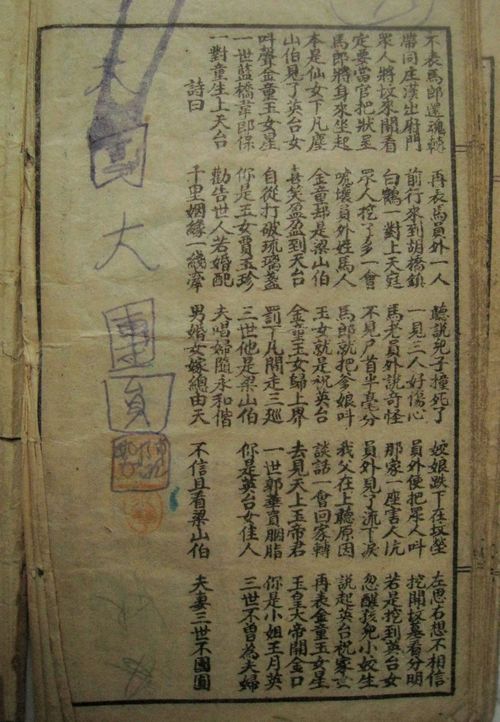 不表馬郎還魂轉 再表馬員外一人 聽說兒子撞死了 姣娘跌下在坟塋 左思右想不相信
帶同庄漢出府門 前行來到胡橋鎮 一見三人好傷心 員外便把眾人叫 挖開坟墓看分明
眾人將坟來開看 白鶴一對上天庭 馬老員外說奇怪 那家一座害人坑 若是挖到英台女
定要當官把狀呈 眾人挖了多一會 不見尸首半毫分 員外見了流下淚 忽醒孩兒小姣生
馬郎將身來坐起 唬壞員外姓馬人 馬郎就把爹娘叫 我父在上聽原因 說起英台祝家
本是仙女下凡塵 金童却是梁山伯 玉女就是祝英台 談話一會回家轉 再表金童玉女星
山伯見了英台女 喜笑盈盈到天台 金童玉女歸上界 去見天上玉帝君 玉皇大帝開金口
叫聲金童玉女星 自從打破琉璃盞 罰下凡間走三廵 一世郭華賣胭脂 你是小姐王月英
一世藍橋韋郎保 你是玉女賈玉珍 三世他是梁山伯 你是英台女佳人 三世不曾為夫婦
一對童生上天台 勸告世人若婚配 夫唱婦隨永和偕
詩曰 千里姻緣一綫牽 男婚女嫁總由天 不信且看梁山伯 夫妻三世不團圓
大 團員